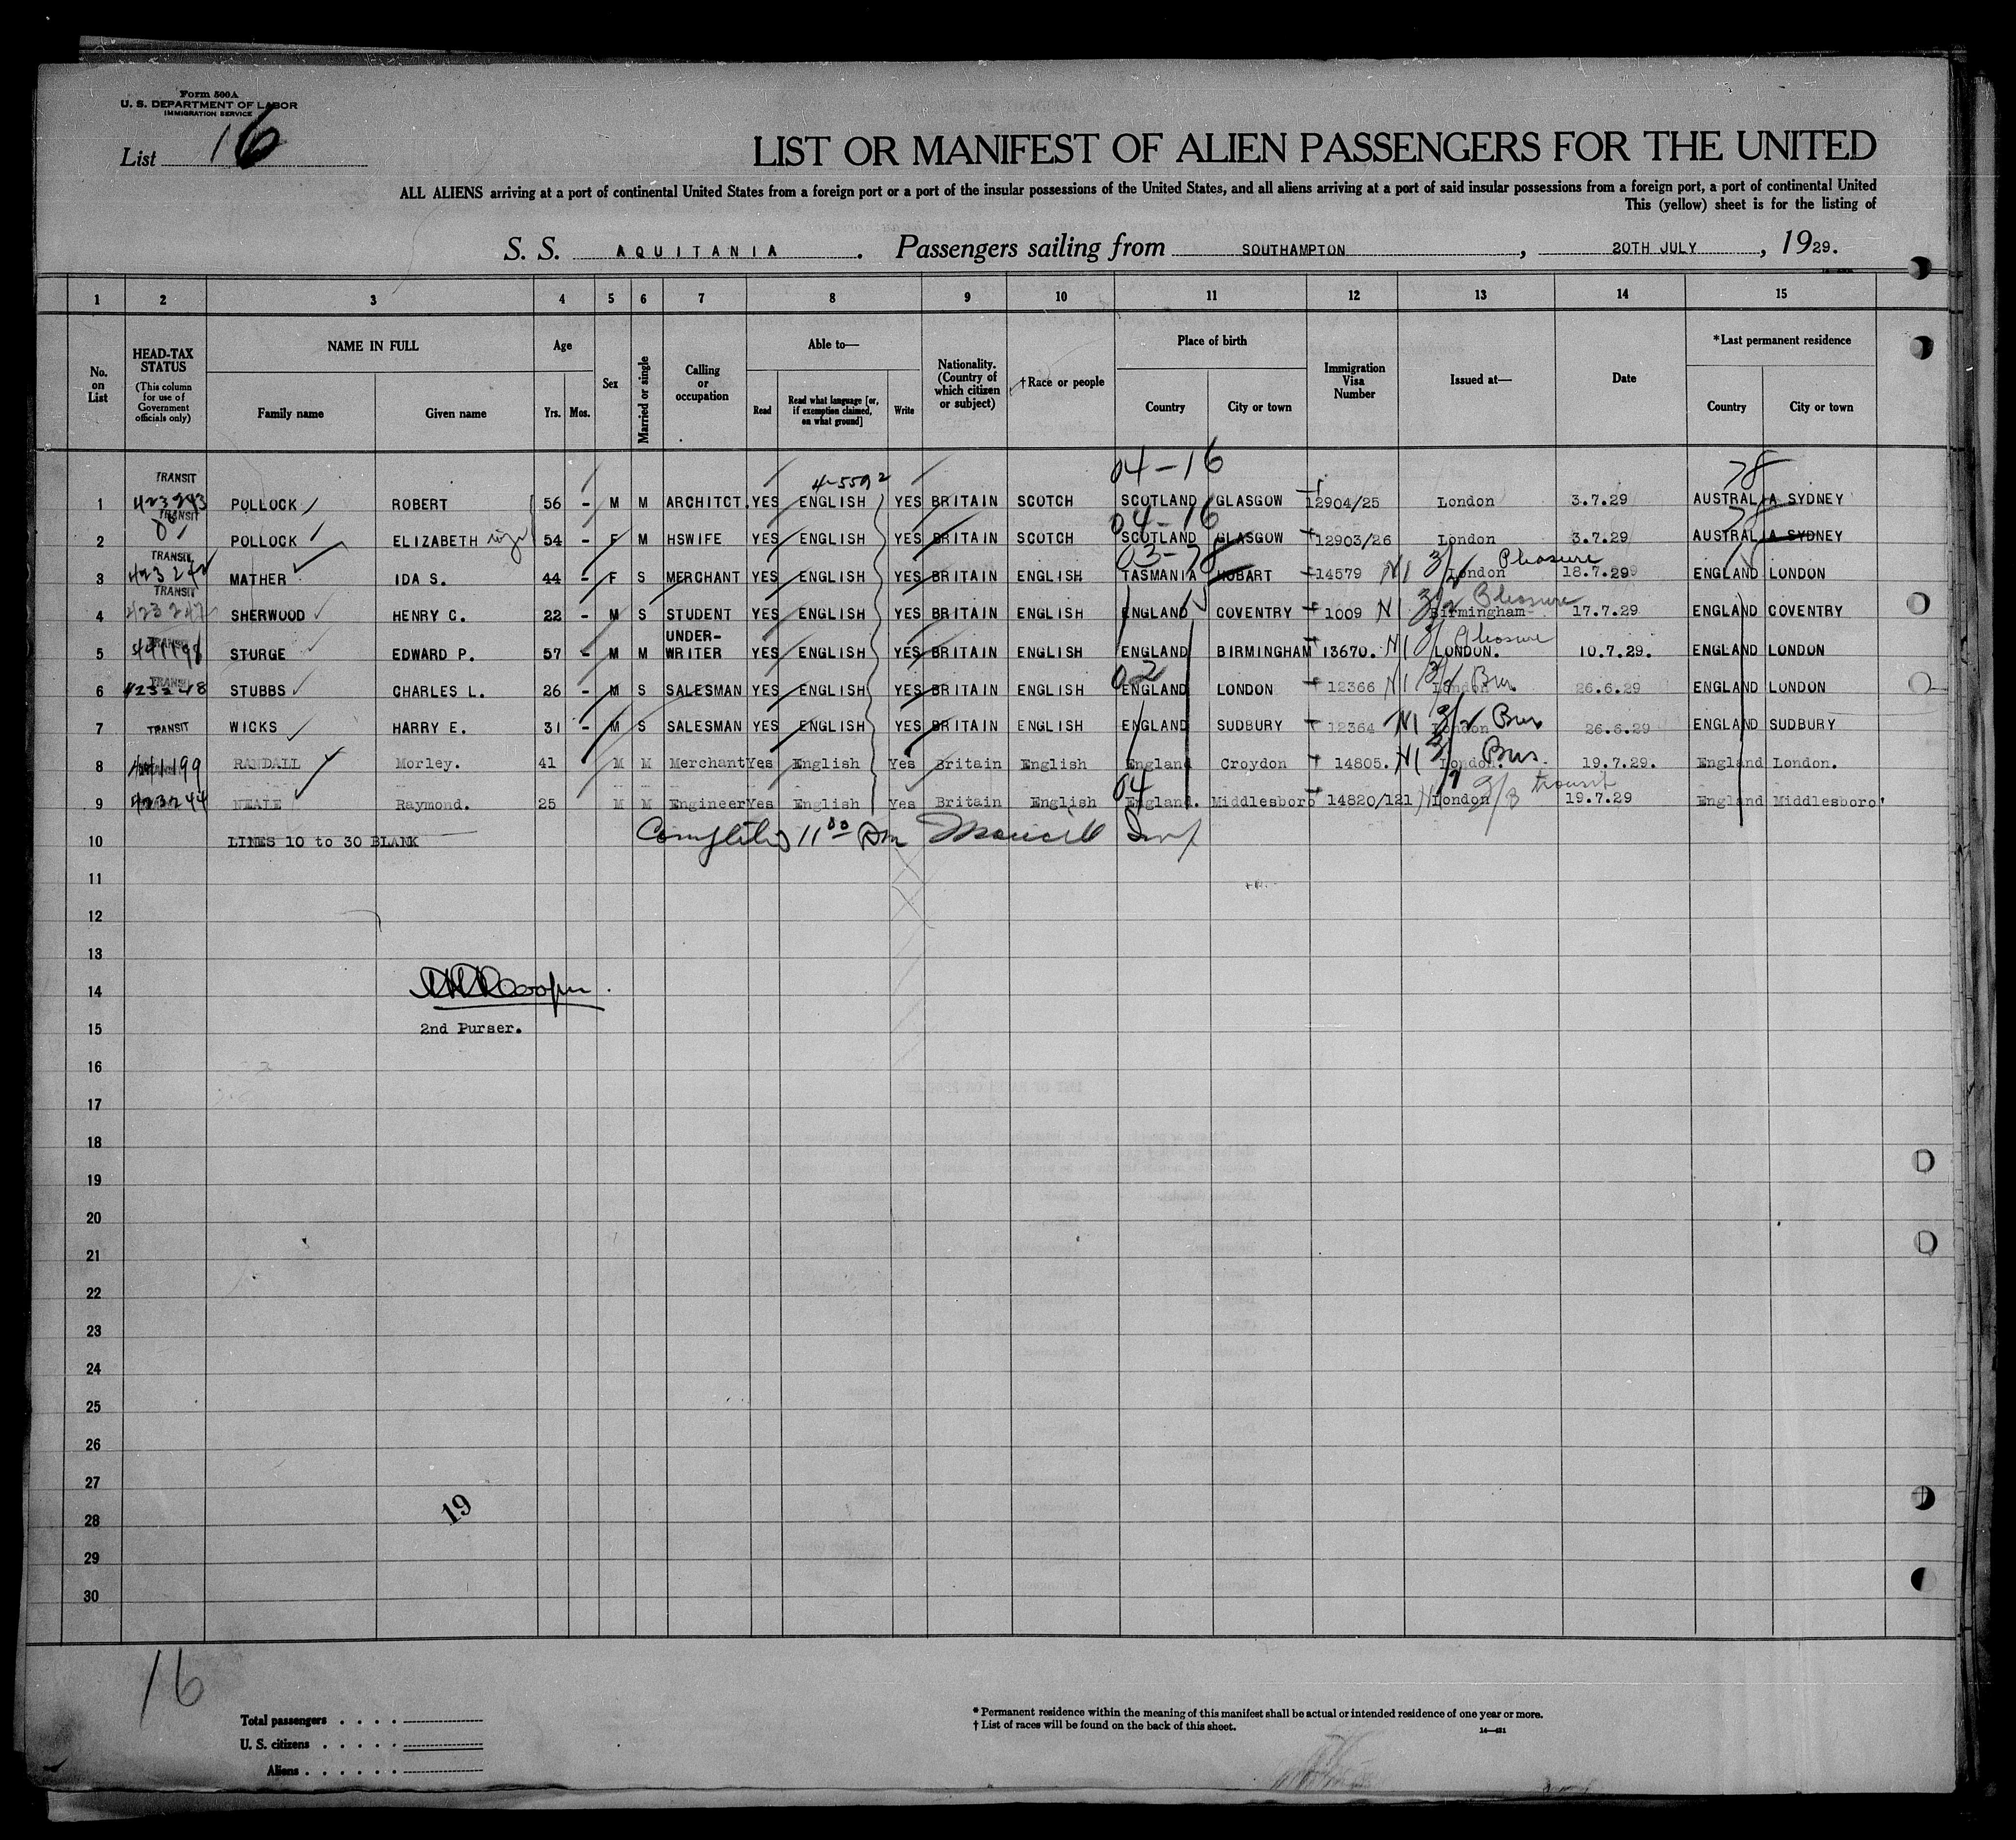 Form 500A
U. S. DEPARTMENT OF LABOR
IMMIGRATION SERVICE
List 16
LIST OR MANIFEST OF ALIEN PASSENGERS FOR THE UNITED
ALL ALIENS arriving at a port of continental United States from a foreign port or a port of the insular possessions of the United States, and all aliens arriving at a port of said insular possessions from a foreign port, a port of continental United
This (yellow) sheet is for the listing of
S. S. AQUITANIA . Passengers sailing from SOUTHAMPTON , 20TH JULY , 1929.
1 2 3 4 5 6 7 8 9 10 11 12 13 14 15
No. on List
HEAD-TAX STATUS
(This column for use of Government officials only)
NAME IN FULL
Family name Given name
Age
Yrs. Mos.
Sex
Married or single
Calling or occupation
Able to—
Read Read what language [or, if exemption claimed, on what ground] Write
Nationality. (Country of which citizen or subject)
†Race or people
Place of birth
Country City or town
Immigration Visa Number
Issued at—
Date
*Last permanent residence
Country City or town
04-16 78
TRANSIT 4-5592
1 423293 POLLOCK ROBERT 56 - M M ARCHITCT. YES ENGLISH YES BRITAIN SCOTCH SCOTLAND GLASGOW 12904/25 London 3.7.29 AUSTRALIA SYDNEY
TRANSIT 04-16 78
2 POLLOCK ELIZABETH 54 - F M HSWIFE YES ENGLISH YES BRITAIN SCOTCH SCOTLAND GLASGOW 12903/26 London 3.7.29 AUSTRALIA SYDNEY
TRANSIT 03-78 Pleasure
3 MATHER IDA S. 44 - F S MERCHANT YES ENGLISH YES BRITAIN ENGLISH TASMANIA HOBART 14579 London 18.7.29 ENGLAND LONDON
TRANSIT Pleasure
4 423247 SHERWOOD HENRY C. 22 - M S STUDENT YES ENGLISH YES BRITAIN ENGLISH ENGLAND COVENTRY 1009 Birmingham 17.7.29 ENGLAND COVENTRY
TRANSIT UNDER- Pleasure
5 STURGE EDWARD P. 57 - M M WRITER YES ENGLISH YES BRITAIN ENGLISH ENGLAND BIRMINGHAM 13670. LONDON. 10.7.29. ENGLAND LONDON
TRANSIT 02
6 423248 STUBBS CHARLES L. 26 - M S SALESMAN YES ENGLISH YES BRITAIN ENGLISH ENGLAND LONDON 12366 London Bus 26.6.29 ENGLAND LONDON
7 TRANSIT WICKS HARRY E. 31 - M S SALESMAN YES ENGLISH YES BRITAIN ENGLISH ENGLAND SUDBURY 12364 London Bus 26.6.29 ENGLAND SUDBURY
8 441199 RANDALL Morley. 41 M M Merchant Yes English Yes Britain English England Croydon 14805. London Bus. 19.7.29. England London.
04 transit
9 423244 NEALE Raymond. 25 M M Engineer Yes English Yes Britain English England. Middlesboro 14820/121 London 19.7.29 England Middlesboro'
10 LINES 10 to 30 BLANK 11 00 Am
11
12
13
14
15 2nd Purser.
16
17
18
19
20
21
22
23
24
25
26
27
28 19
29
30
16
Total passengers . . . .
U. S. citizens . . . . .
Aliens . . . . . .
* Permanent residence within the meaning of this manifest shall be actual or intended residence of one year or more.
† List of races will be found on the back of this sheet.